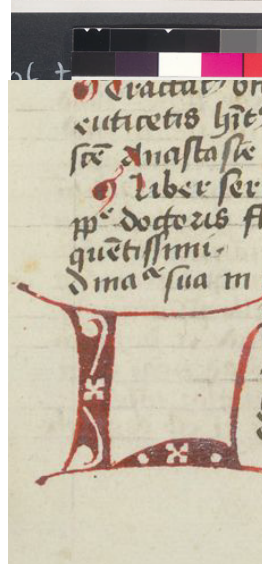 Tractat⁹ on
euticetis hr̄t
sc̄e Anastasie
Liber ser
pp̄ doctoris fl
quētissimi.
dmaᵃ sua in
L